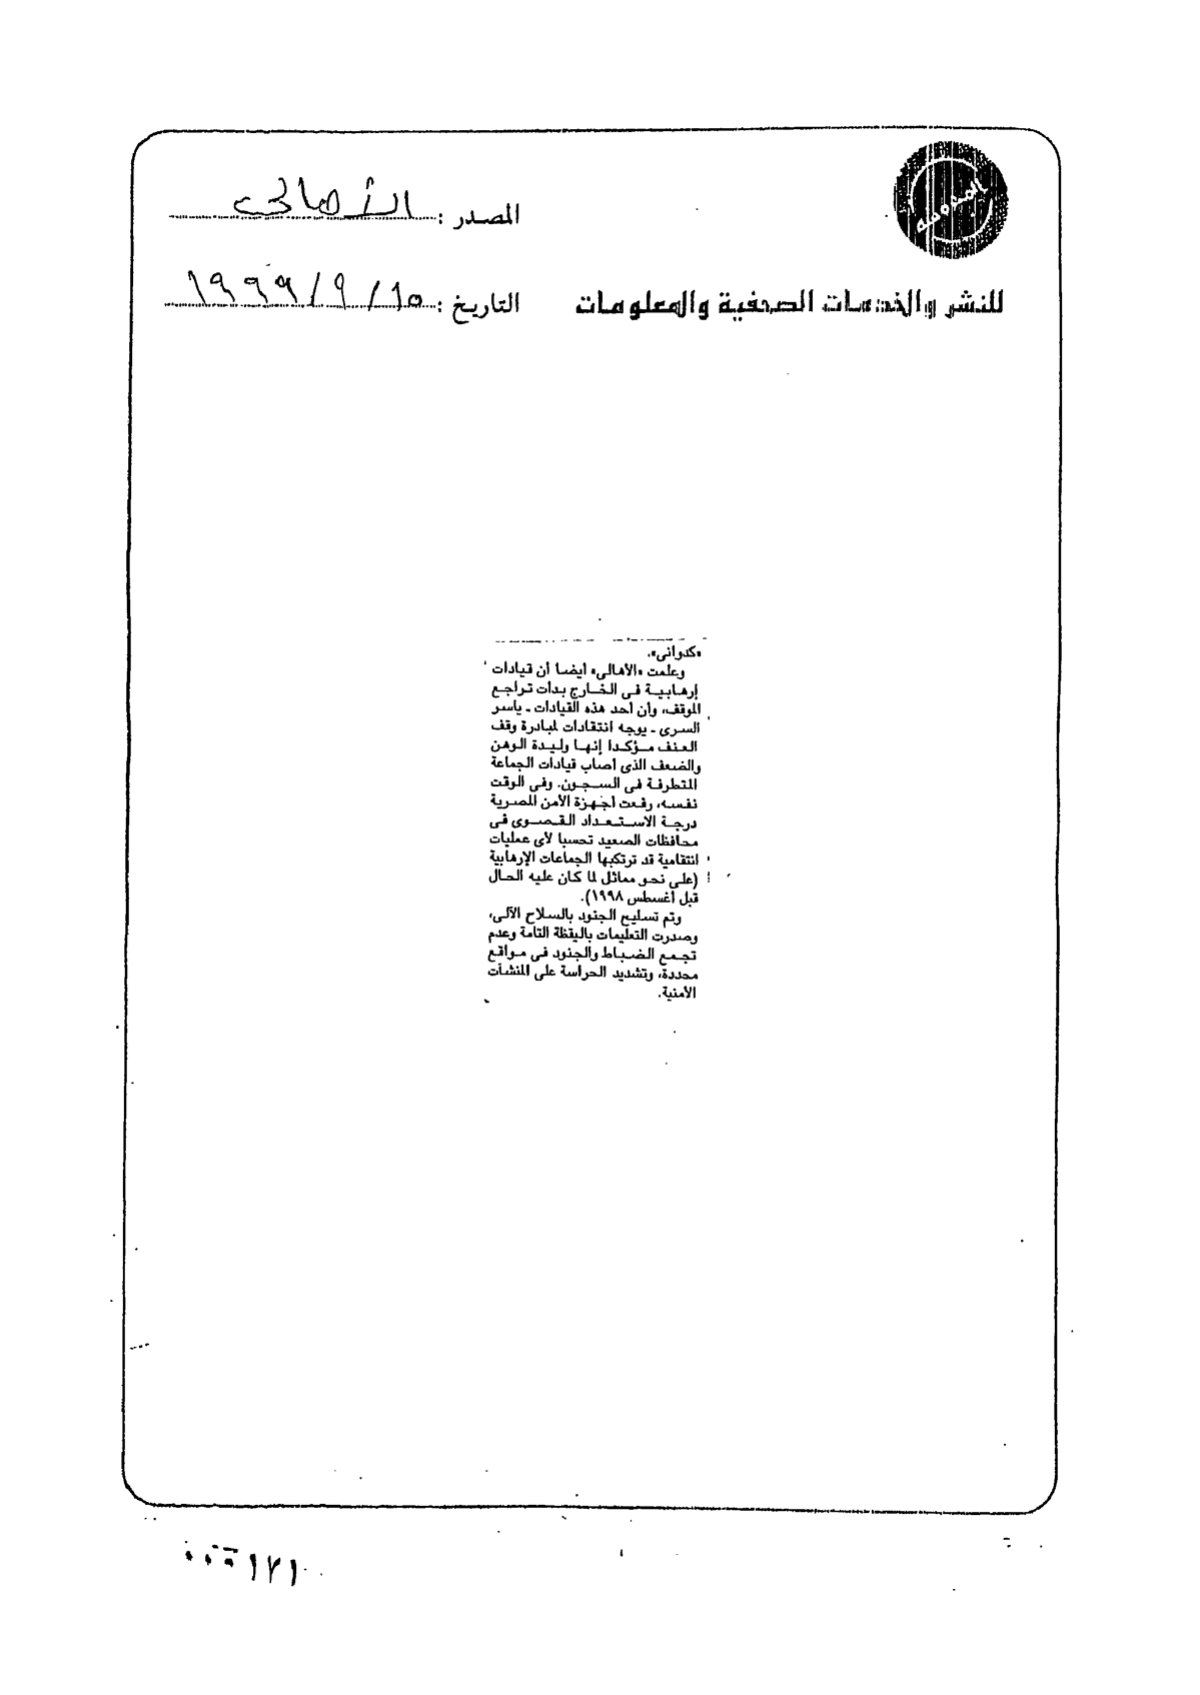 المصدر : الأهالى
للنشر والخدمات الصحفية والمعلومات
التاريخ : ١٥ / ٩ / ١٩٩٩
«كدوانى».
وعلمت «الأهالى» أيضا أن قيادات
إرهابية فى الخارج بدأت تراجع
الموقف، وأن أحد هذه القيادات ـ ياسر
السرى ـ يوجه انتقادات لمبادرة وقف
العنف مؤكدا إنها وليدة الوهن
والضعف الذى أصاب قيادات الجماعة
المتطرفة فى السجون. وفى الوقت
نفسه، رفعت أجهزة الأمن المصرية
درجة الاستعداد القصوى فى
محافظات الصعيد تحسبا لأى عمليات
انتقامية قد ترتكبها الجماعات الإرهابية
(على نحو مماثل لما كان عليه الحال
قبل أغسطس ١٩٩٨).
وتم تسليح الجنود بالسلاح الآلى،
وصدرت التعليمات باليقظة التامة وعدم
تجمع الضباط والجنود فى مواقع
محددة، وتشديد الحراسة على المنشآت
الأمنية.